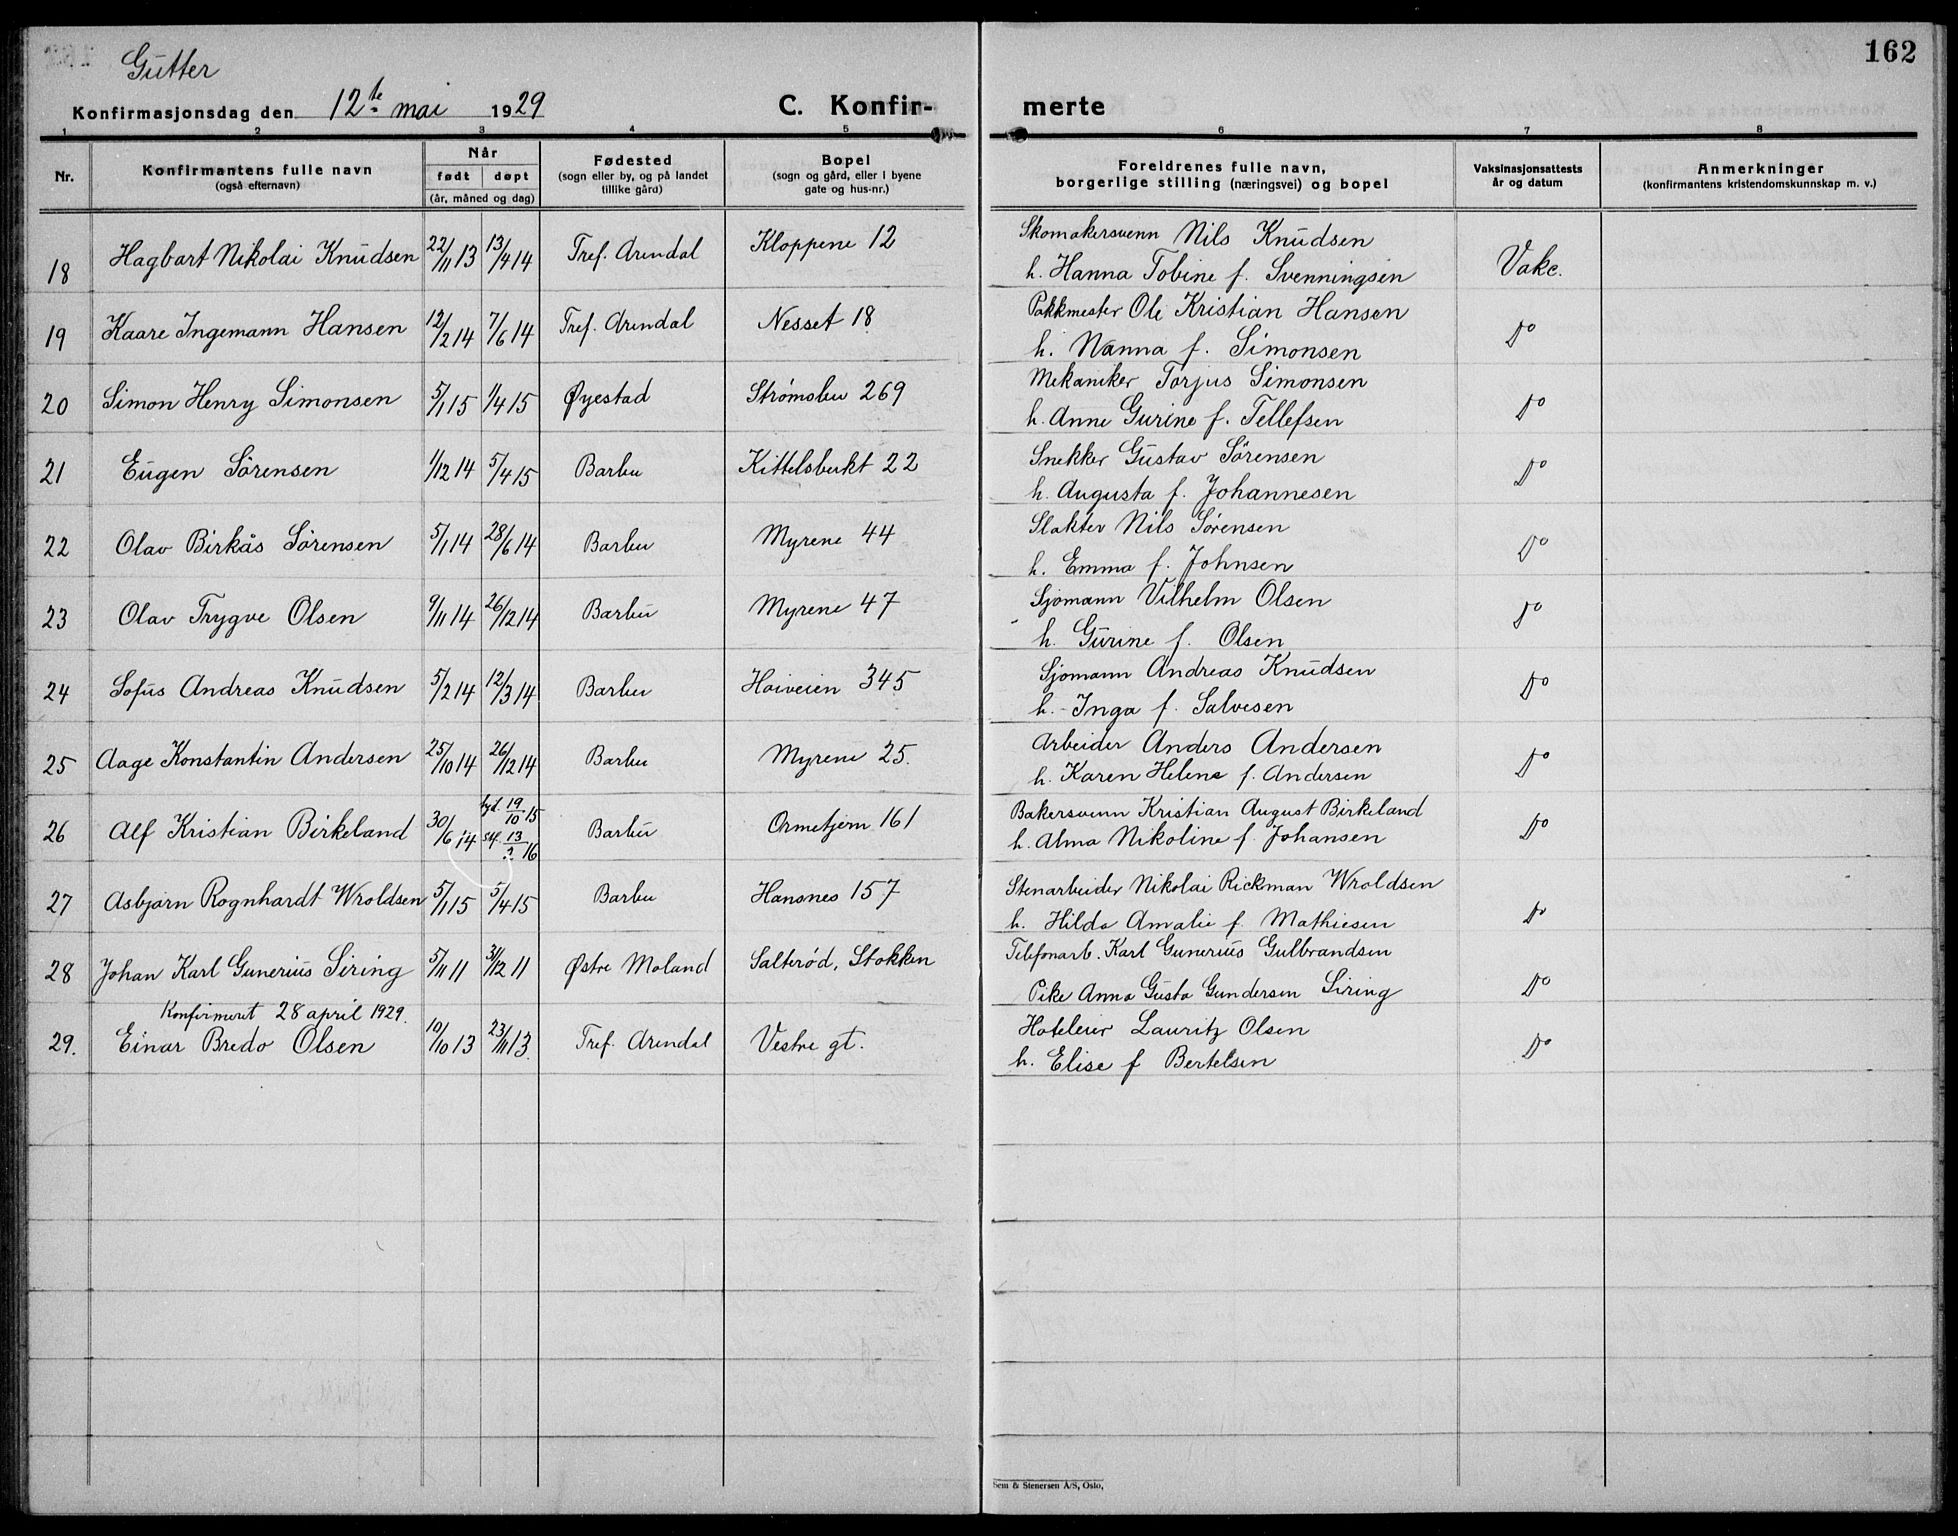 Gutter
162
Konfirmasjonsdag den 12te mai 1929
C. Konfir-
merte
1 2 3 4 5 6 7 8
Nr.
Konfirmantens fulle navn
(også efternavn)
Når
født døpt
(år, måned og dag)
Fødested
(sogn eller by, og på landet
tillike gård)
Bopel
(sogn og gård, eller i byene
gate og hus-nr.)
Foreldrenes fulle navn,
borgerlige stilling (næringsvei) og bopel
Vaksinasjonsattests
år og datum
Anmerkninger
(konfirmantens kristendomskunnskap m. v.)
18 Hagbart Nikolai Knudsen 22/11 13 13/4 14 Tref. Arendal Kloppene 12 Skomakersvenn Nils Knudsen
h. Hanna Tobine f. Svenningsen Vakc.
19 Kaare Ingemann Hansen 12/2 14 7/6 14 Tref. Arendal Nesset 18 Pakkmester Ole Kristian Hansen
h. Nanna f. Simonsen Do
20 Simon Henry Simonsen 5/1 15 1/4 15 Øyestad Strømsbu 269 Mekaniker Torjus Simonsen
h. Anne Gurine f. Tellefsen Do
21 Eugen Sörensen 1/12 14 5/4 15 Barbu Kittelsbukt 22 Snekker Gustav Sörensen
h. Augusta f. Johannesen Do
22 Olav Birkås Sörensen 5/1 14 28/6 14 Barbu Myrene 44 Slakter Nils Sörensen
h. Emma f. Johnsen Do
23 Olav Trygve Olsen 9/11 14 26/12 14 Barbu Myrene 47 Sjømann Vilhelm Olsen
h. Gurine f. Olsen Do
24 Sofus Andreas Knudsen 5/2 14 12/3 14 Barbu Høiveien 345 Sjømann Andreas Knudsen
h. Inga f. Salvesen Do
25 Aage Konstantin Andersen 25/10 14 26/12 14 Barbu Myrene 25. Arbeider Anders Andersen
h. Karen Helene f. Andersen Do
26 Alf Kristian Birkeland 30/6 14 hjd. 19/10 15 Barbu Ormetjern 161 Bakersvenn Kristian August Birkeland
stf. 13/? 16 h. Alma Nikoline f. Johansen Do
27 Asbjørn Rognhardt Wroldsen 5/1 15 5/4 15 Barbu Hansnes 157 Stenarbeider Nikolai Rickman Wroldsen
h. Hilda Amalie f. Mathiesen Do
28 Johan Karl Gunerius Siring 5/11 11 31/12 11 Østre Moland Salterød, Stokken Telefonarb. Karl Gunerius Gulbrandsen
Pike Anna Gusta Gundersen Siring Do
Konfirmeret 28 april 1929.
29. Einar Bredo Olsen 10/10 13 23/11 13. Tref. Arendal Vestre gt. Hoteleier Lauritz Olsen
h. Elise f Bertelsen Do
Sem & Stenersen A/S, Oslo,